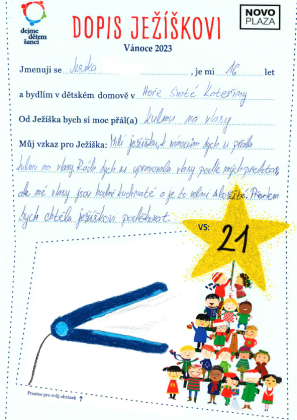 dejme
dětem
šanci
DOPIS JEŽÍŠKOVI
NOVO
PLAZA
Vánoce 2023
Jmenuji se , je mi 16 let
a bydlím v dětském domově v Hoře Svaté Kateřiny
Od Ježíška bych si moc přál(a) kulmu na vlasy
Můj vzkaz pro Ježíška: Milý ježíšku k vánocům bych si přála
kulmu na vlasy. Ráda bych si upravovala vlasy podle mých představ,
ale mé vlasy jsou hodně kudrnaté a je to velmi složité. Předem
bych chtěla ježíškovi poděkovat.
VS:
21
Prostor pro tvůj obrázek